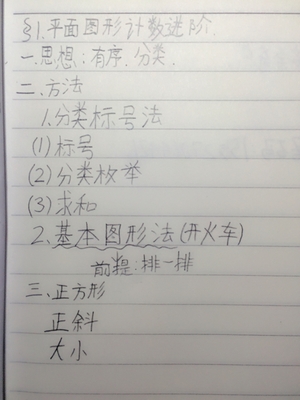 §1.平面图形计数进阶.
一.思想:有序.分类.
二.方法
1.分类标号法
(1)标号
(2)分类枚举
(3)求和
2.基本图形法(开火车)
前提:排一排
三、正方形
正斜
大小